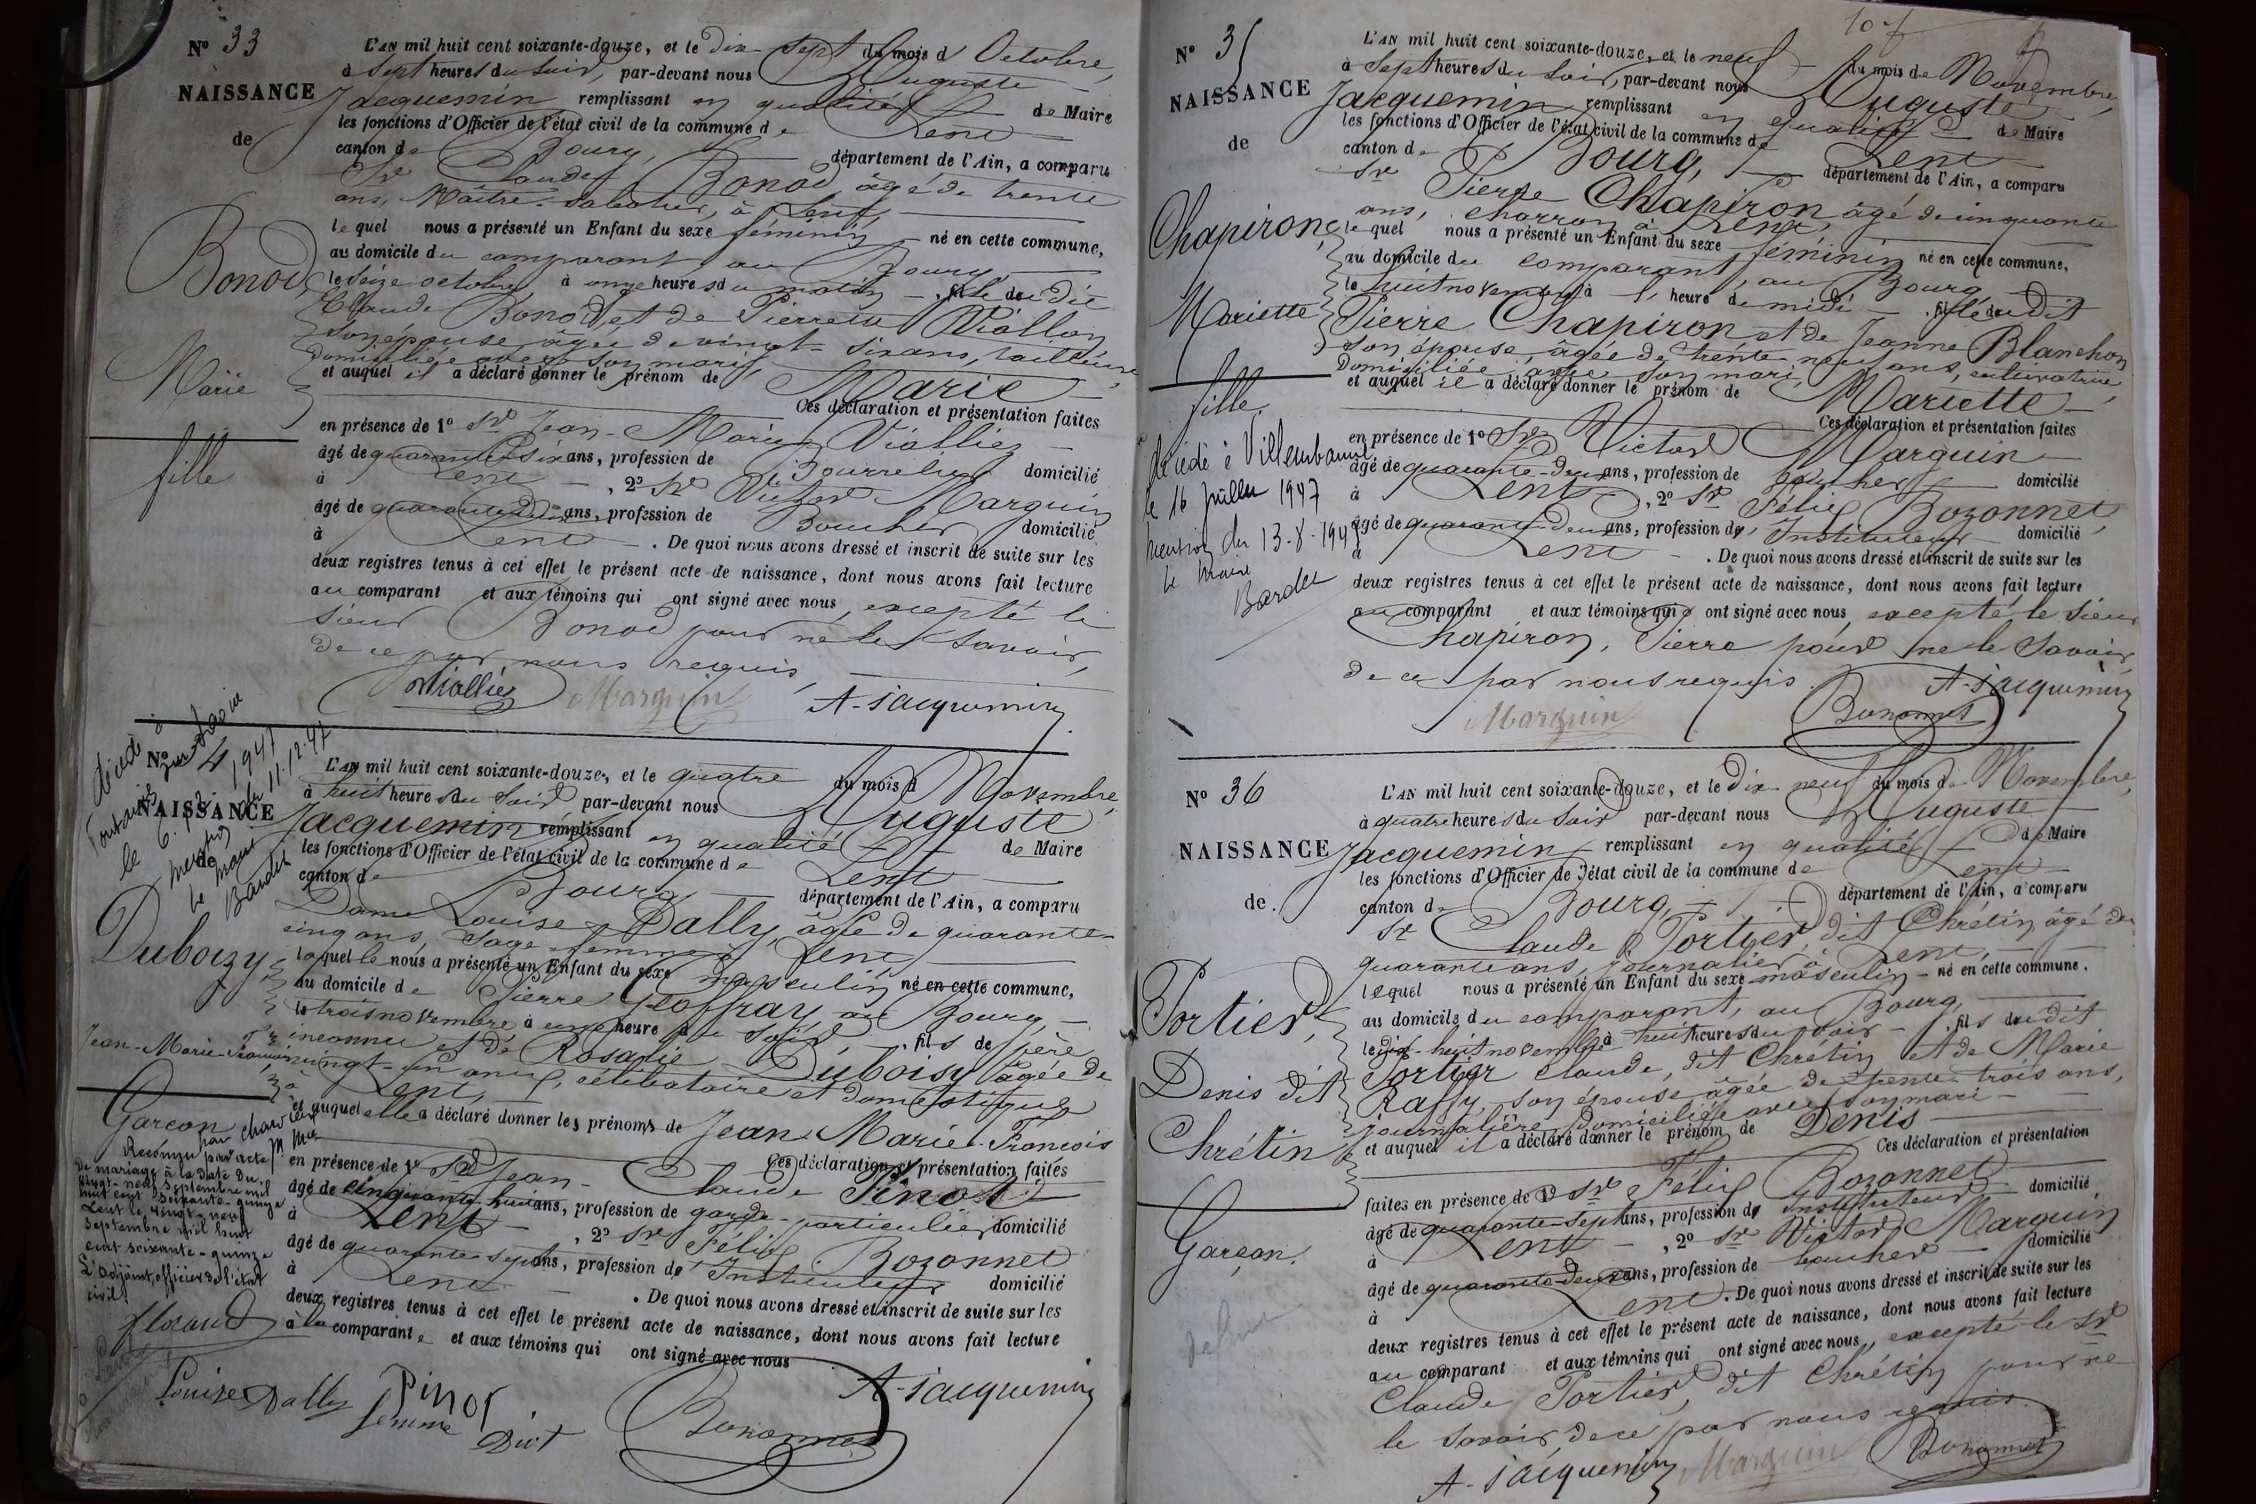 Nº 33
NAISSANCE
de
Bonod
Marie
fille
L'AN mil huit cent soixante-douze, et le dix sept du mois d'Octobre,
à sept heures du soir, par-devant nous Auguste
Jacquemin remplissant en qualité de Maire
les fonctions d'Officier de l'état civil de la commune de Lent
canton de Bourg, département de l'Ain, a comparu
Sr Claude Bonod, âgé de trente
ans, Maître-sabotier, à Lent,
lequel nous a présenté un Enfant du sexe féminin né en cette commune,
au domicile du comparant au Bourg,
le seize octobre à onze heures du matin, fille du dit
Claude Bonod et de Pierrette Viallon
son épouse âgée de vingt-six ans, tailleuse,
domiciliée avec son mari,
et auquel il a déclaré donner le prénom de Marie
Ces déclaration et présentation faites
en présence de 1º Sr Jean-Marie Viallier
âgé de quarante six ans, profession de Bourrelier domicilié
à Lent, 2º Sr Victor Marguin
âgé de quarante deux ans, profession de Boucher domicilié
à Lent. De quoi nous avons dressé et inscrit de suite sur les
deux registres tenus à cet effet le présent acte de naissance, dont nous avons fait lecture
au comparant et aux témoins qui ont signé avec nous excepté le
sieur Bonod pour ne le savoir,
de ce par nous requis,
Viallier Marguin A-Jacquemin
décédé à
Fontaines sur Saône
le 6.12.1947
mention du 11.12.47
le maire
Bardet
Nº 34
NAISSANCE
de
Duboizy
Jean-Marie-François
Garçon
Reconnu par acte
de mariage à la date du
vingt-neuf septembre mil
huit cent soixante-quinze
Lent le vingt-neuf
septembre mil huit
cent soixante-quinze
L'adjoint, officier de l'état
civil
L'AN mil huit cent soixante-douze, et le quatre du mois d Novembre,
à huit heures du soir par-devant nous Auguste
Jacquemin remplissant en qualité de Maire
les fonctions d'Officier de l'état civil de la commune de Lent
canton de Bourg département de l'Ain, a comparu
Dame Louise Dally, âgée de quarante-
cinq ans, sage-femme à Lent
laquelle nous a présenté un Enfant du sexe masculin né en cette commune,
au domicile de Pierre Geoffray au Bourg,
le trois novembre à une heure du soir, fils de père
inconnu et de Rosalie Duboisy âgée de
vingt-un ans, célibataire et domestique
à Lent,
et auquel elle a déclaré donner les prénoms de Jean Marie-François
Ces déclaration et présentation faites
en présence de 1º Sr Jean-Claude Pinot
âgé de cinquante-huit ans, profession de garde-particulier domicilié
à Lent, 2º Sr Félix Bozonnet
âgé de quarante-sept ans, profession de Instituteur domicilié
à Lent. De quoi nous avons dressé et inscrit de suite sur les
deux registres tenus à cet effet le présent acte de naissance, dont nous avons fait lecture
à la comparante et aux témoins qui ont signé avec nous
Louise Dally femme Pinot A-Jacquemin
Bozonnet
107
Nº 35
NAISSANCE
de
Chapiron,
Mariette
fille
décédée à Villeurbanne
le 16 juillet 1947
mention du 13-8-1947
le maire
Bardet
L'AN mil huit cent soixante-douze, et le neuf du mois de Novembre,
à sept heures du soir, par-devant nous Auguste
Jacquemin remplissant en qualité de Maire
les fonctions d'Officier de l'état civil de la commune de Lent
canton de Bourg, département de l'Ain, a comparu
Sr Pierre Chapiron âgé de cinquante
ans, charron à Lent,
lequel nous a présenté un Enfant du sexe féminin né en cette commune,
au domicile du comparant, au Bourg
le huit novembre à l'heure de midi, fille du dit
Pierre Chapiron et de Jeanne Blanchon
son épouse, âgée de trente-neuf ans, cultivatrice,
domiciliée avec son mari,
et auquel il a déclaré donner le prénom de Mariette
Ces déclaration et présentation faites
en présence de 1º Sr Victor Marguin
âgé de quarante-deux ans, profession de boucher domicilié
à Lent, 2º Sr Félix Bozonnet,
âgé de quarante-deux ans, profession de Instituteur domicilié
à Lent. De quoi nous avons dressé et inscrit de suite sur les
deux registres tenus à cet effet le présent acte de naissance, dont nous avons fait lecture
au comparant et aux témoins qui ont signé avec nous excepté le sieur
Chapiron, Pierre pour ne le savoir,
de ce par nous requis.
Marguin Bozonnet A-Jacquemin
Nº 36
NAISSANCE
de
Portier,
Denis dit
Chrétin
Garçon.
L'AN mil huit cent soixante-douze, et le dix neuf du mois de Novembre,
à quatre heures du soir par-devant nous Auguste
Jacquemin remplissant en qualité de Maire
les fonctions d'Officier de l'état civil de la commune de Lent
canton de Bourg, département de l'Ain, a comparu
Sr Claude Portier, dit Chrétin âgé de
quarante ans, journalier à Lent,
lequel nous a présenté un Enfant du sexe masculin né en cette commune,
au domicile du comparant, au Bourg,
le dix-huit novembre à huit heures du soir, fils du dit
Portier Claude, dit Chrétin et de Marie
Raffy, son épouse âgée de trente-trois ans,
journalière, domiciliée avec son mari
et auquel il a déclaré donner le prénom de Denis
Ces déclaration et présentation
faites en présence de 1º Sr Félix Bozonnet
âgé de quarante-sept ans, profession de Instituteur domicilié
à Lent, 2º Sr Victor Marguin
âgé de quarante-deux ans, profession de boucher domicilié
à Lent. De quoi nous avons dressé et inscrit de suite sur les
deux registres tenus à cet effet le présent acte de naissance, dont nous avons fait lecture
au comparant et aux témoins qui ont signé avec nous, excepté le Sr
Claude Portier, dit Chrétin pour ne
le savoir, de ce par nous requis.
A-Jacquemin Marguin Bozonnet